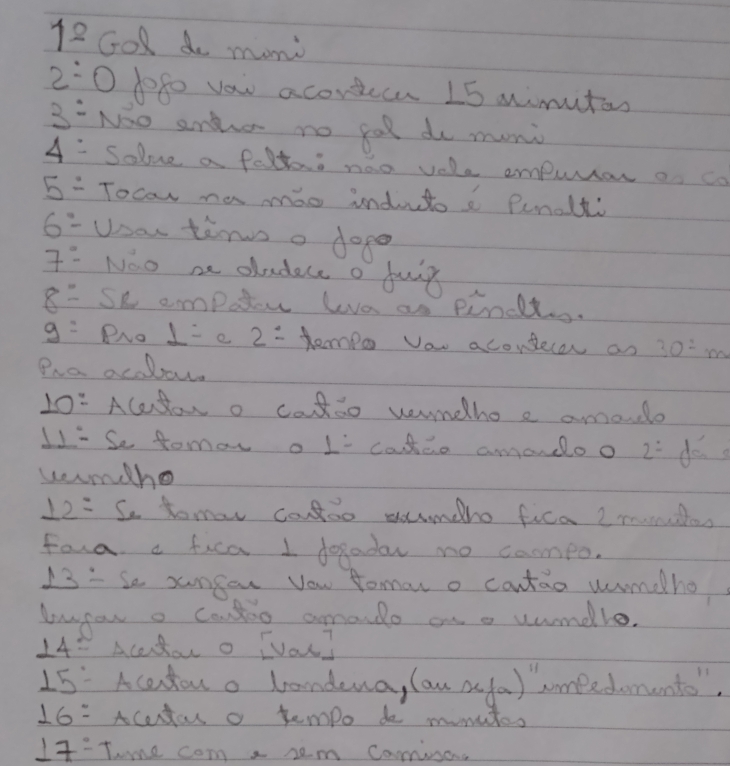 1º Gol de mini
2º O jogo vai acontecer 15 minutos
3º Não entra no gol de mini
4º Sobre a falta: não vale empurrar os co
5º Tocar na mão induto é Penalti
6º Usar tênis o jogo
7º Não se obedece o juiz
8º SE empatar leva as pênaltes.
9º Pro 1º e 2º tempo vai acontecer as 30º m
Pra acabar.
10º Aceitar o cartão vermelho e amarelo
11º Se tomar o 1º cartão amarelo o 2º já
vermelho
12º Se tomar cartão vermelho fica 2 minutos
fora e fica 1 jogador no campo.
13º Se xingar vai tomar o cartão vermelho,
o cartão amarelo ou o vermelho.
14º Aceitar o [Var]
15º Aceitar o bandeira, (ou seja) "impedimento".
16º Aceitar o tempo de minutos
17º Time com e sem camisa.